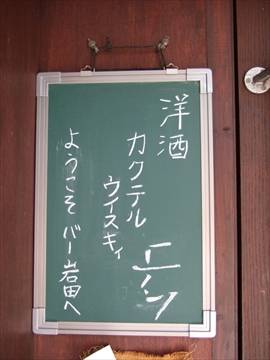 洋酒
カクテル
ウイスキィ
ようこそ バー岩田へ